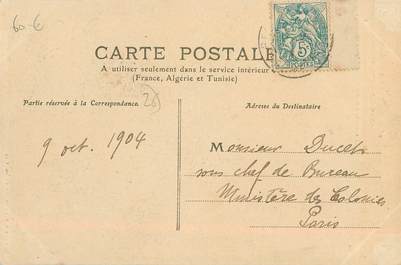 60 €
CARTE POSTALE
5c
A utiliser seulement dans le service intérieur
(France, Algérie et Tunisie)
Partie réservée à la Correspondance.
Adresse du Destinataire
9 oct. 1904
Monsieur Ducet
sous chef de Bureau
Ministère des Colonies
Paris